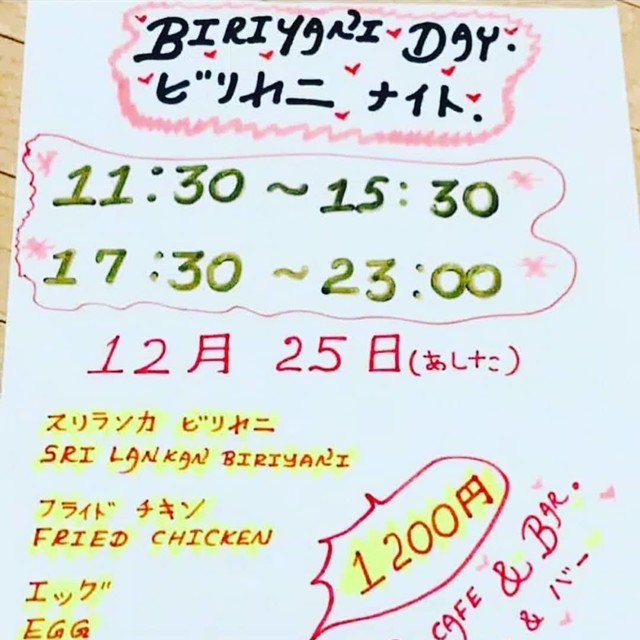 BIRIYANI DAY.
ビリヤニ ナイト.
11:30 ~ 15:30
17:30 ~ 23:00
12月 25日(あした)
スリランカ ビリヤニ
SRI LANKAN BIRIYANI
フライド チキン
FRIED CHICKEN
エッグ
EGG
1200円
CAFE & BAR.
& バー